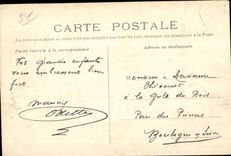 51
CARTE POSTALE
La correspondance au recto n'est pas acceptée par tous les pays étrangers se renseigner à la Poste
Partie réservée à la correspondance
Adresse du destinataire
Vos grands enfants
vous embrassent bien
fort
Maurice
Odette
Monsieur Madame
à la Gste de Bois
Parc des Princes
Boulogne s/ Seine